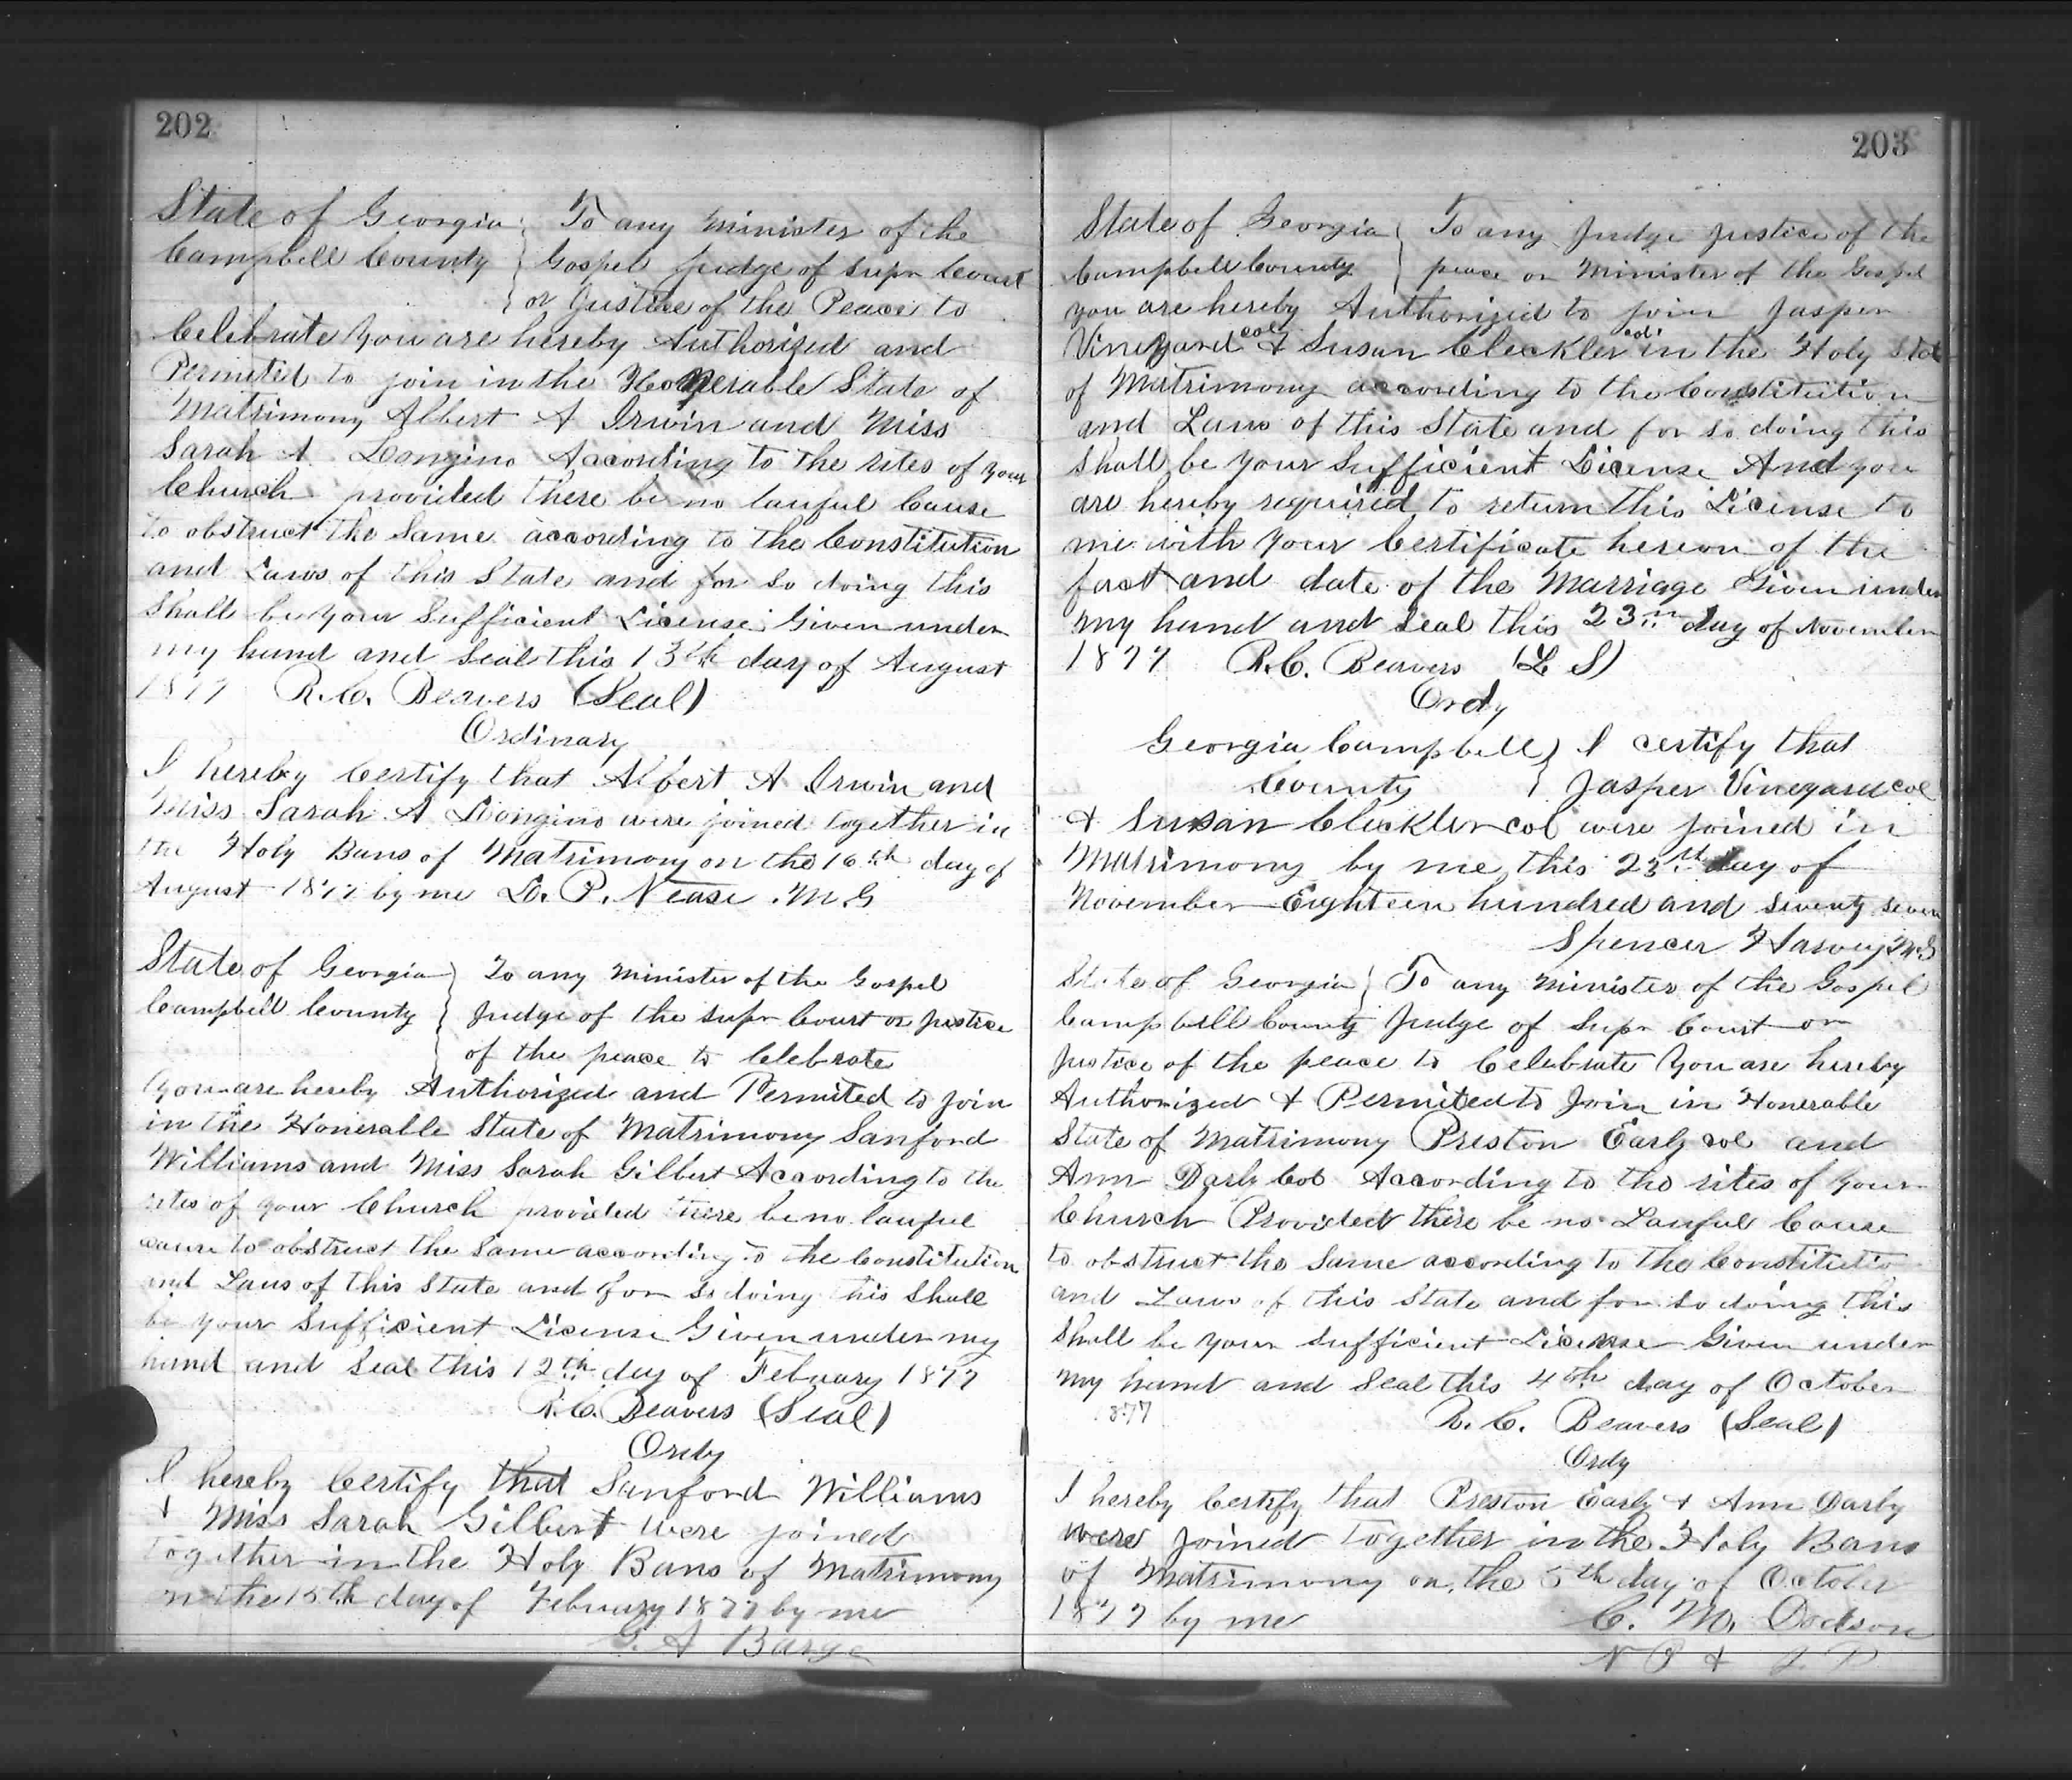 202
State of Georgia } To any Minister of the
Campbell County } Gospel Judge of Supr Court
} or Justice of the Peace to
Celebrate You are hereby Authorized and
Permited to join in the Honerable State of
Matrimony Albert A Irwin and Miss
Sarah A Longino According to the rites of your
Church provided there be no lauful Cause
to obstruct the Same according to the Constitution
and Laws of this State and for So doing this
Shall be your Sufficient License Given under
my hand and Seal this 13th day of August
1877 R. C. Beavers (Seal)
Ordinary
I hereby Certify that Albert A Irwin and
Miss Sarah A Longino were joined together in
the Holy Bans of Matrimony on the 16th day of
August 1877 by me L. P. Nease M.G
State of Georgia } To any Minister of the Gospel
Campbell County } Judge of the Supr Court or Justice
of the peace to Celebrate
You are hereby Authorized and Permited to join
in the Honerable State of Matrimony Sanford
Williams and Miss Sarah Gilbert According to the
rites of your Church provided there be no lauful
cause to obstruct the Same according to the Constitution
and Laws of this State and for So doing this Shall
be your Sufficient License Given under my
hand and Seal this 12th day of Febuary 1877
R. C. Beavers (Seal)
Ordy
I hereby Certify that Sanford Williams
+ Miss Sarah Gilbert were joined
together in the Holy Bans of Matrimony
on the 15th day of Febuary 1877 by me
A Barge
203
State of Georgia } To any Judge Justice of the
Campbell County } peace or Minister of the Gospel
you are hereby Authorized to join Jasper
Vineyard col + Susan Cleckler col in the Holy State
of Matrimony according to the Constitution
and Laws of this State and for so doing this
Shall be your Sufficient License And you
are hereby required to return this License to
me with your Certificate hereon of the
fact and date of the Marriage Given under
my hand and Seal this 23rd day of November
1877 R. C. Beavers (L S)
Ordy
Georgia Campbell } I certify that
County } Jasper Vineyard col
+ Susan Cleckler col were joined in
Matrimony by me this 23rd day of
November Eighteen hundred and seventy seven
Spencer Harvey M.G
State of Georgia } To any Minister of the Gospel
Campbell County Judge of Supr Court or
Justice of the peace to Celebrate You are hereby
Authorized + Permited to Join in Honerable
State of Matrimony Preston Early col and
Ann Darby Col According to the rites of your
Church Provided there be no Lauful Cause
to obstruct the Same according to the Constitutio
and Laws of this State and for So doing this
Shall be your Sufficient License Given under
my hand and Seal this 4th day of October
1877 R. C. Beavers (Seal)
Ordy
I hereby Certify that Preston Early + Ann Darby
were joined together in the Holy Bans
of Matrimony on the 5th day of October
1877 by me C. M. Dodson
N P + J. P